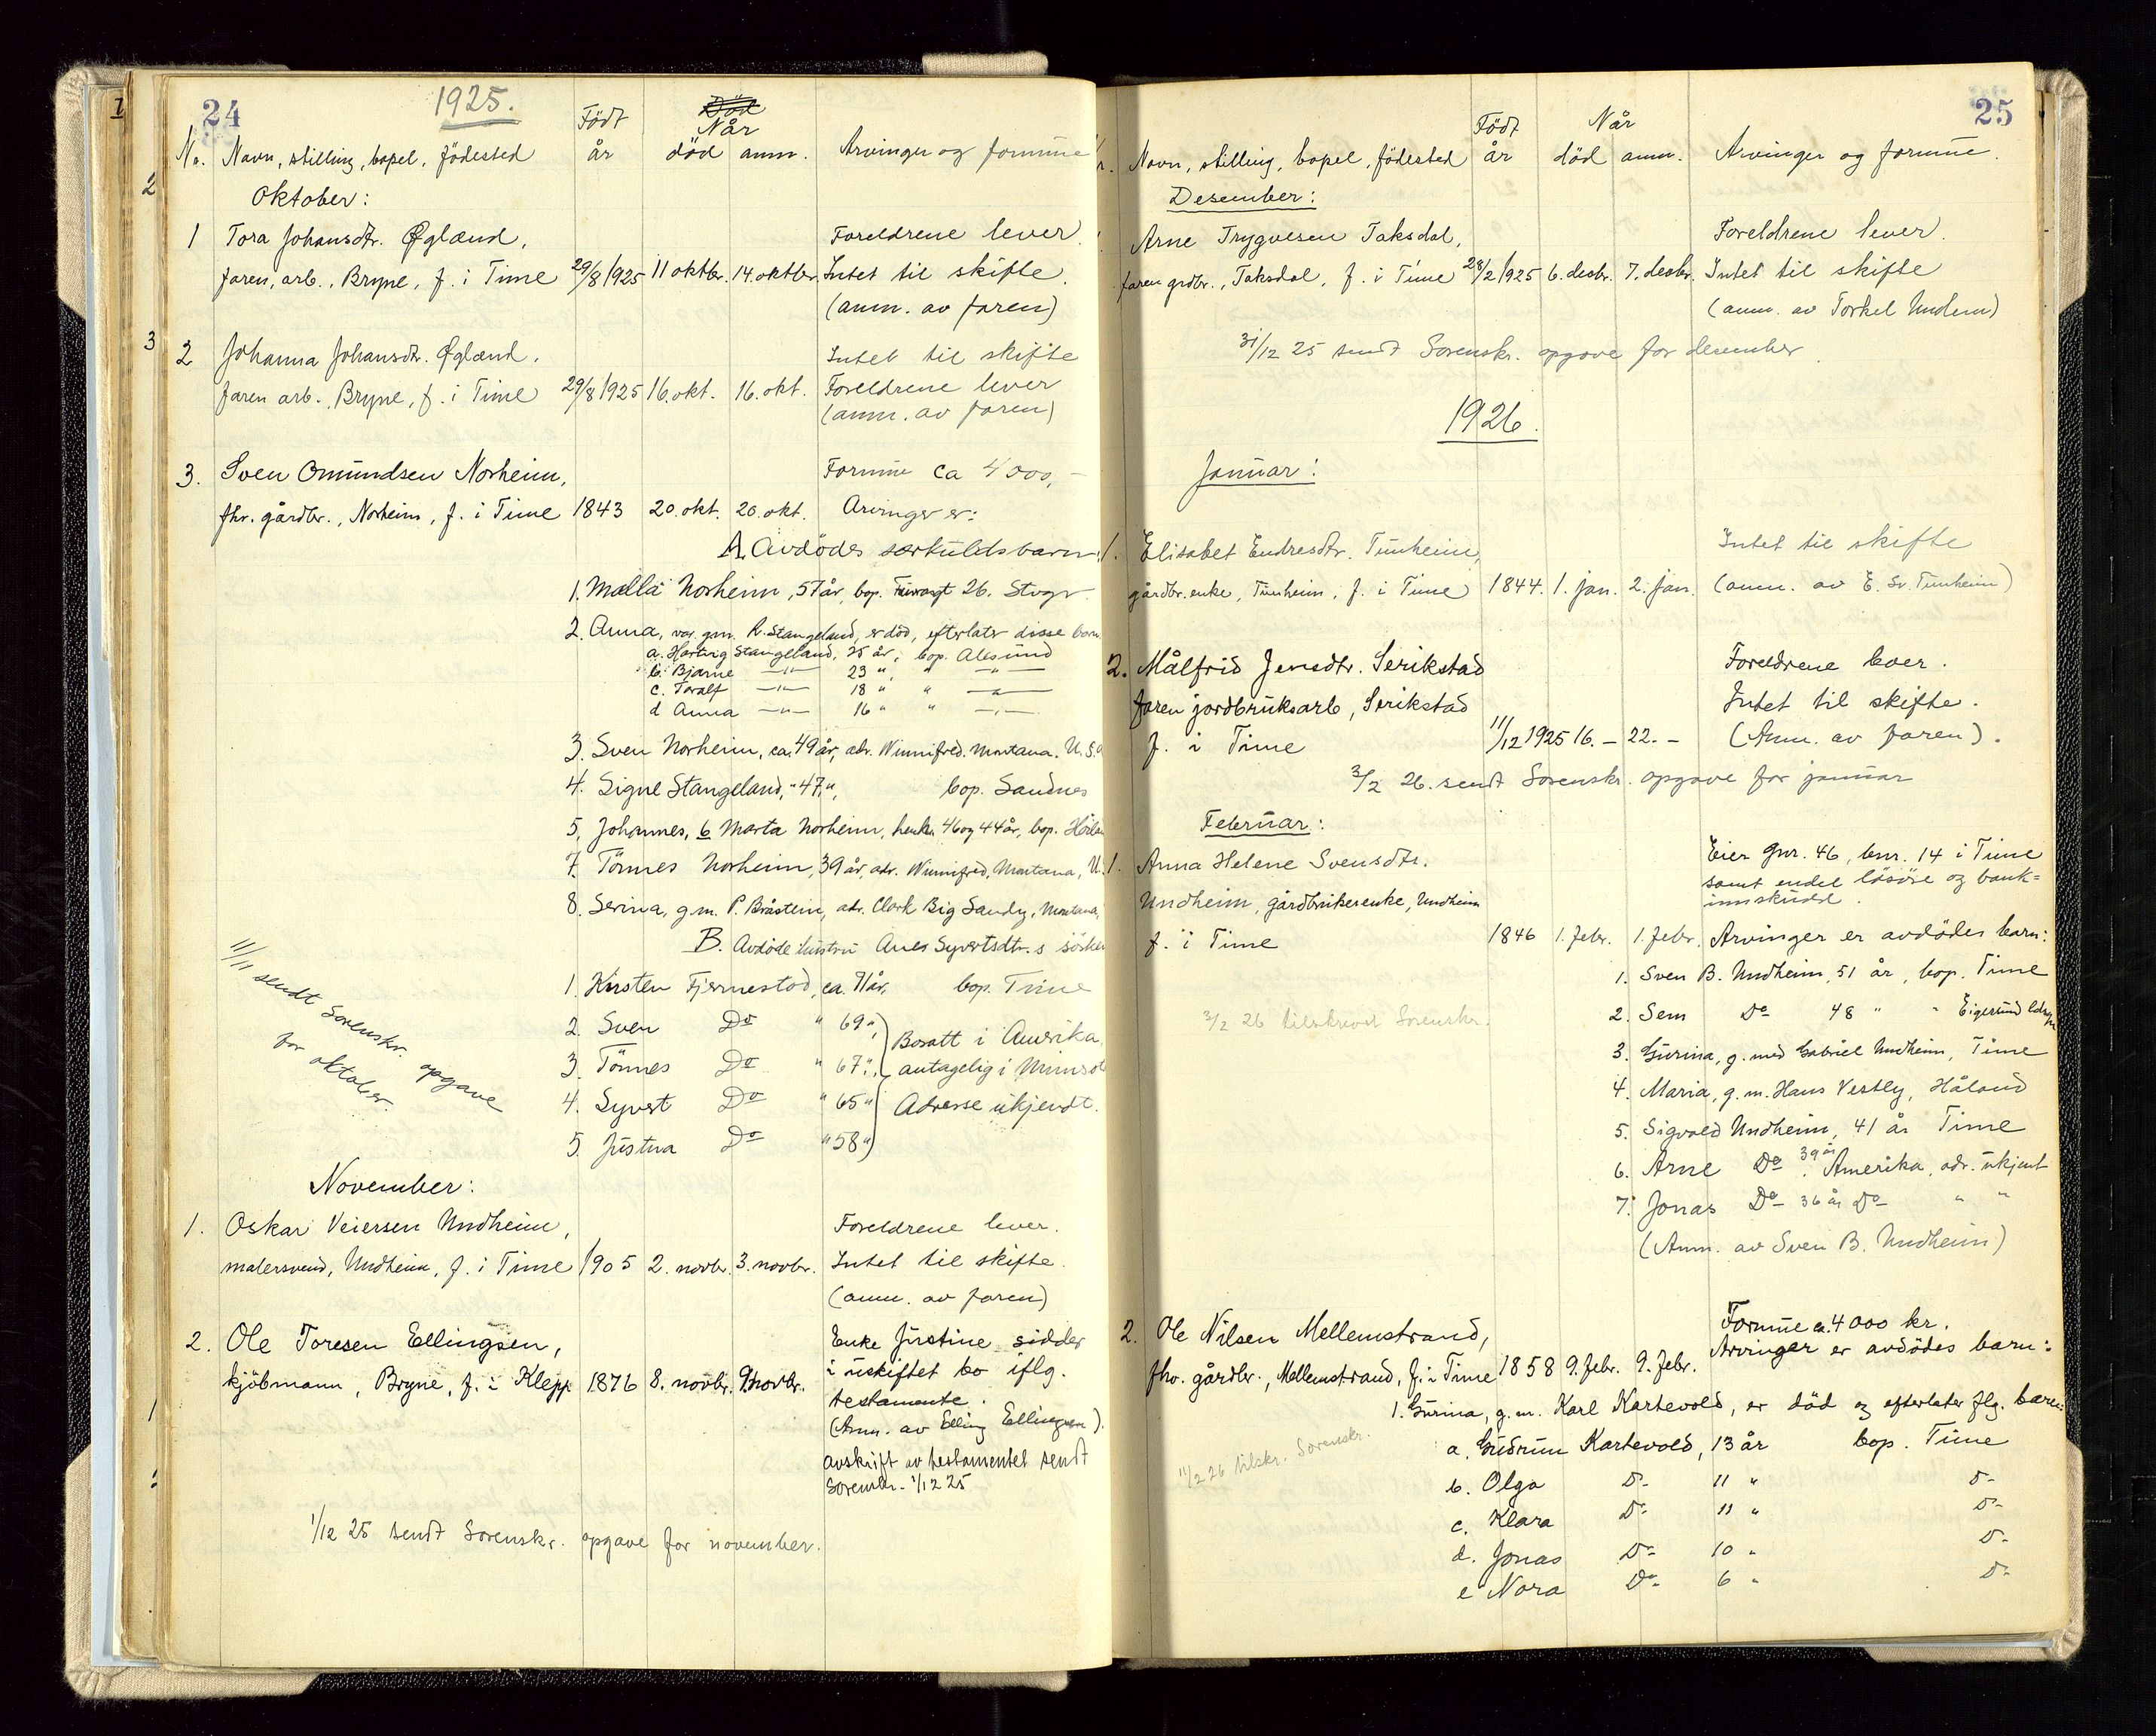 24
1925.
No. Navn, stilling, bopel, födested
Födt år
Död
Når
död anm.
Arvinger og formue
Oktober:
1 Tora Johansdtr. Øglænd,
Foreldrene lever.
faren, arb., Bryne, f. i Time 29/8 1925 11 oktbr. 14. oktbr. Intet til skifte.
(anm. av faren)
2 Johanna Johansdtr. Øglænd.
Intet til skifte
faren arb. Bryne, f. i Time 29/8 1925 16. okt. 16. okt. Foreldrene lever
(anm. av faren)
3. Sven Omundsen Norheim,
Formue ca 4000,-
fhr. gårdbr., Norheim, f. i Time 1843 20. okt. 20. okt. Arvinger er:
A. Avdödes særkuldsbarn:
1. Malla Norheim, 57 år, bop. 26. Stvgr.
2. Anna, var gm. R. Stangeland, er död, efterlater disse barn
a. Hartvig Stangeland, 25 år, bop. Alesund
b. Bjarne —"— 23 " " —"—
c. Toralf —"— 18 " " —"—
d Anna —"— 16 " " —"—
3. Sven Norheim, ca. 49 år, adr. Winnifred. Montana. U.S.a
4. Signe Stangeland, " 47 ", bop. Sandnes
5. Johannes, 6 Marta Norheim, henh. 46 og 44 år, bop. Hålan
7. Tönnes Norheim, 39 år, adr. Winnifred, Montana, U.
8. Serina, g.m. P. Bråstein, adr. Clark Big Sandy, Montana,
B. Avdöde hustru Anes Syvertsdtr.s sösken
1. Kirsten Fjermestad, ca. 71 år, bop. Time
2. Sven Do " 69 ",
3. Tönnes Do " 67 ",
4. Syvert Do " 65 "
5. Justna Do " 58 "
Bosatt i Amerika,
antagelig i Minnsot
Adresse ukjendt.
11/11 sendt Sorenskr. opgave
for oktober.
November:
1. Oskar Veiersen Undheim,
Foreldrene lever.
malersvend, Undheim, f. i Time 1905 2. novbr. 3. novbr. Intet til skifte.
(anm. av faren)
2. Ole Toresen Ellingsen,
Enke Justine sidder
kjöbmann, Bryne, f. i Klepp 1876 8. novbr. 9. novbr. i uskiftet bo iflg.
testamente.
(Anm. av Elling Ellingsen).
avskrift av testamentet sendt
Sorenskr. 1/12 25
1/12 25 sendt Sorenskr. opgave for november.
25
Navn, stilling, bopel, födested
Födt år
Når
död anm.
Arvinger og formue.
Desember:
Arne Trygvesen Taksdal,
Foreldrene lever.
faren grdbr., Taksdal, f. i Time 28/2 1925 6. desbr. 7. desbr. Intet til skifte
(anm. av Torkel Undem)
31/12 25 sendt Sorenskr. opgave for desember.
1926.
Januar:
1. Elisabet Endresdtr. Tunheim,
Intet til skifte
gårdbr. enke, Tunheim, f. i Time 1844. 1. jan. 2. jan. (anm. av E. Sv. Tunheim)
2. Målfrid Jensdtr. Serikstad
Foreldrene lever.
faren jordbruksarb, Serikstad
Intet til skifte.
f. i Time 11/12 1925 16. – 22. – (Anm. av faren).
3/2 26. sendt Sorenskr. opgave for januar
Februar:
1. Anna Helene Svensdtr.
Eier gnr. 46, bnr. 14 i Time
samt endel lösöre og bank=
innskudd.
Undheim, gårdbrukerenke, Undheim
f. i Time 1846 1. febr. 1. febr. Arvinger er avdödes barn:
1. Sven B. Undheim, 51 år, bop. Time
2. Sem Do 48 " " Eigersund ldsgn
3. Gurina, g. med Gabriel Undheim, Time
4. Maria, g.m. Hans Vestly, Håland
5. Sigvald Undheim, 41 år Time
6. Arne Do 39 år, Amerika, adr. ukjent
7. Jonas Do 36 år Do " "
(Anm. av Sven B. Undheim)
3/2 26 tilskrevet Sorenskr.
2. Ole Nilsen Mellemstrand,
Formue ca. 4000 kr.
fhv. gårdbr., Mellemstrand, f. i Time 1858 9. febr. 9. febr. Arvinger er avdödes barn:
1. Gurina, g.m. Karl Kartevold, er död og efterlater flg. barn:
a. Gudrun Kartevold, 13 år bop. Time
b. Olga Do 11 " Do
c. Klara Do 11 " Do
d. Jonas Do 10 " Do
e Nora Do 6 " Do
11/2 26 tilskr. Sorenskr.